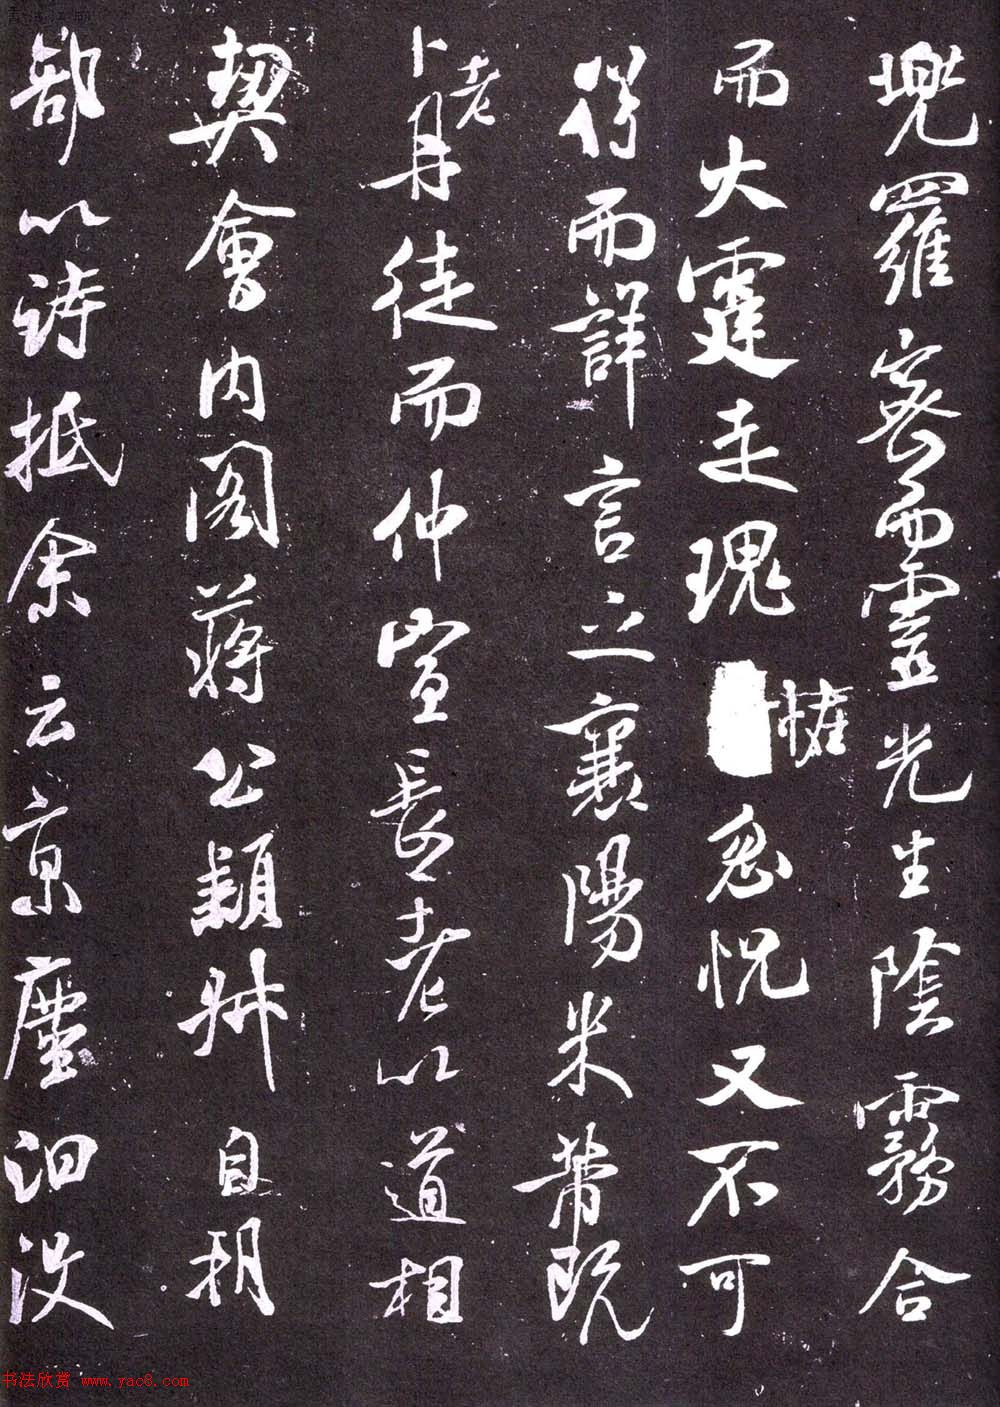 兜羅密而靈光生陰霧合
而大霆走瑰忽怳又不可
得而詳言之襄陽米芾既
卜老丹徒而仲宣長老以道相
契會内閣蔣公穎叔自朔
部以詩抵余云京塵汩没
书法欣赏 www.yac8.com